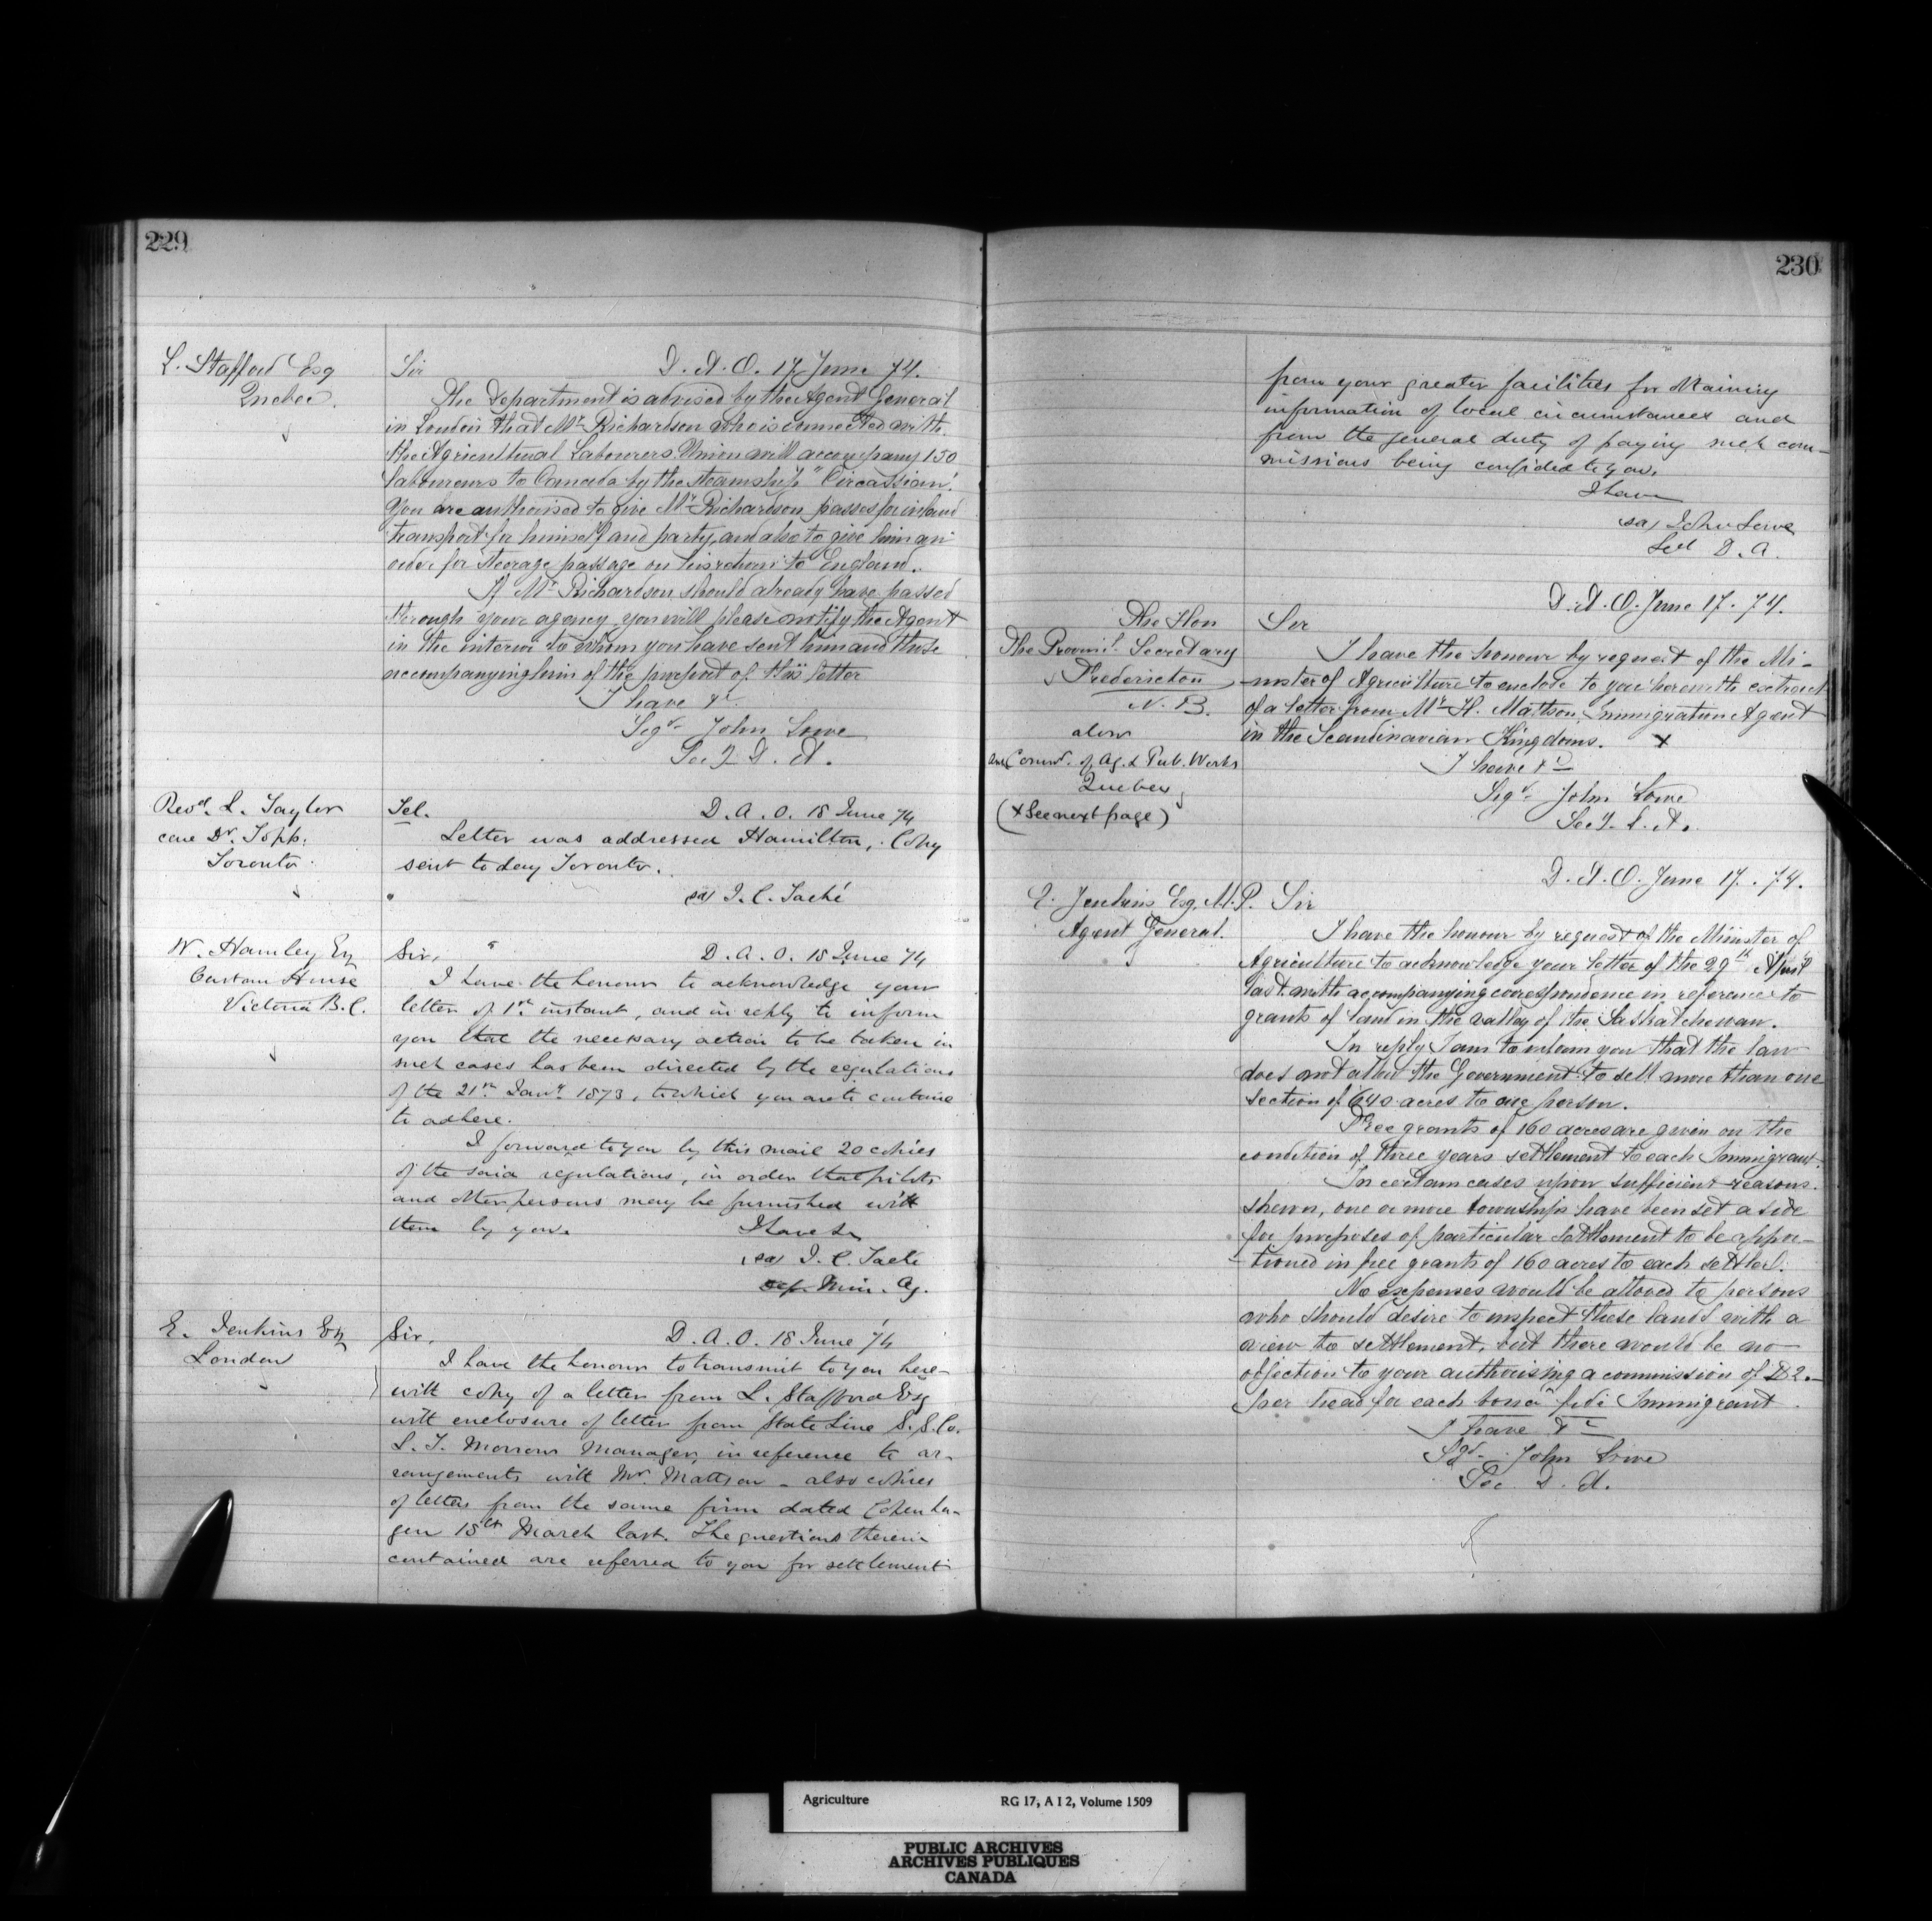 229
L. Stafford Esq
Quebec.
Sir D. A. O. 17 June 74.
The Department is advised by the Agent General
in London that Mr. Richardson who is connected with
the Agricultural Labourers Union will accompany 150
labourers to Canada by the steamship "Circassian".
You are authorised to give Mr. Richardson passes for inland
transport for himself and party, and also to give him an
order for steerage passage on his return to England.
If Mr. Richardson should already have passed
through your agency you will please notify the Agent
in the interior to whom you have sent him and those
accompanying him of the purport of this letter
I have &c
Sigd. John Lowe
Secy D. A.
Revd. L. Taylor
care Dr. Topp.
Toronto.
Tel. D. A. O. 18 June 74
Letter was addressed Hamilton, Copy
sent to day Toronto.
(sd) J. C. Taché
W. Hamley Esq
Custom House
Victoria B.C.
Sir, D. A. O. 18 June 74
I have the honour to acknowledge your
letter of 1st. instant, and in reply to inform
you that the necessary action to be taken in
such cases has been directed by the regulations
of the 21st. Jany. 1873, to which you are to continue
to adhere.
I forward to you by this mail 20 copies
of the said regulations, in order that pilots
and other persons may be furnished with
them by you. I have &c
(sd) J. C. Taché
Dep. Min. Ag.
E. Jenkins Esq
London
Sir, D. A. O. 18 June 74
I have the honour to transmit to you here-
with copy of a letter from L. Stafford Esq
with enclosure of letter from State Line S. S. Co.
L. T. Morrow Manager, in reference to ar-
rangements with Mr. Mattson - also copies
of letters from the same firm dated Copenha-
gen 18th March last. The questions therein
contained are referred to you for settlement
230
from your greater facilities for obtaining
information of local circumstances and
from the general duty of paying such com-
missions being confided to you.
I have
(sd) John Lowe
Secy D. A.
D. A. O. June 17. 74.
The Hon
The Provinl. Secretary
Fredericton
N. B.
also
Commr. of Ag. & Pub. Works
Quebec
(x See next page)
Sir
I have the honour by request of the Mi-
nister of Agriculture to enclose to you herewith extract
of a letter from Mr. H. Mattson, Immigration Agent
in the Scandinavian Kingdoms. x
I have &c
Sigd. John Lowe
Secy. D. A.
D. A. O. June 17. 74.
E. Jenkins Esq. M.P. Sir
Agent General.
I have the honour by request of the Minister of
Agriculture to acknowledge your letter of the 29th April
last with accompanying correspondence in reference to
grants of land in the valley of the Saskatchewan.
In reply I am to inform you that the law
does not allow the Government to sell more than one
section of 640 acres to one person.
Free grants of 160 acres are given on the
condition of three years settlement to each Immigrant.
In certain cases upon sufficient reasons
shewn, one or more townships have been set aside
for purposes of particular settlement to be appor-
tioned in free grants of 160 acres to each settler.
No expenses would be allowed to persons
who should desire to inspect these lands with a
view to settlement, but there would be no
objection to your authorising a commission of $2.
per head for each bona fide Immigrant
I have &c
Sgd. John Lowe
Sec. D. A.
Agriculture RG 17, A I 2, Volume 1509
PUBLIC ARCHIVES
ARCHIVES PUBLIQUES
CANADA